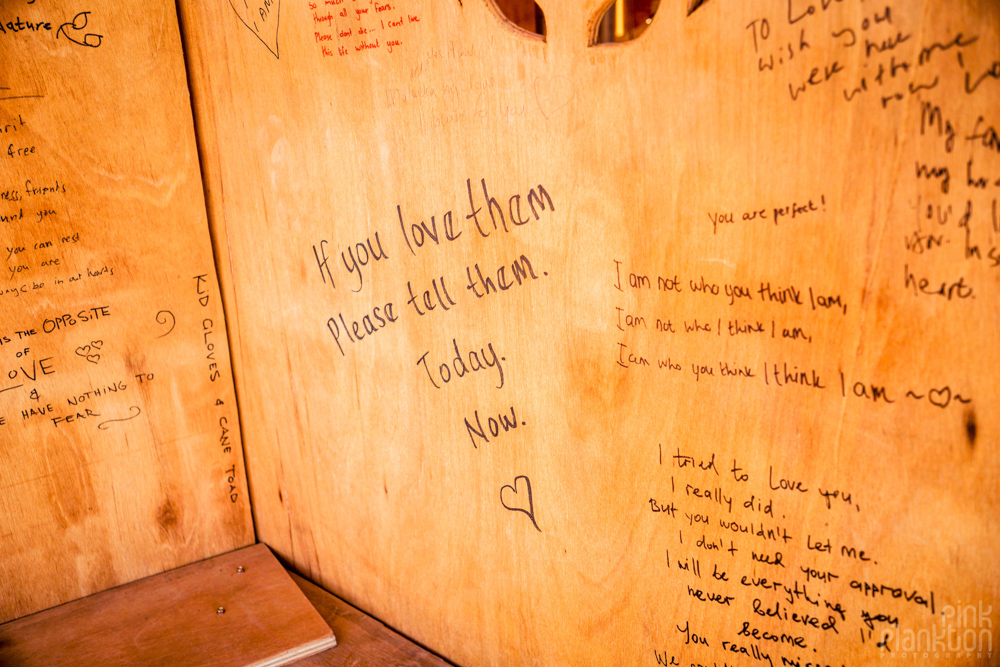 Nature
free
ress, friends
und you
you can rest
you are
be in our hearts
IS THE OPPOSITE
OF
LOVE
&
E HAVE NOTHING TO
FEAR
KID GLOVES & CANE TOAD
so much
through all your fears.
Please dont die... I cant live
this life without you.
If you love them
Please tell them.
Today.
Now.
TO LOVE
wish you
were here
with me,
row
My fa
my
You'd
in s
heart.
you are perfect!
I am not who you think I am,
I am not who I think I am,
I am who you think I think I am ~♡~
I tried to Love you,
I really did.
But you wouldn't let me.
I don't need your approval
I will be everything you
never believed I'd
become.
You really
We
pink
plankton
PHOTOGRAPHY